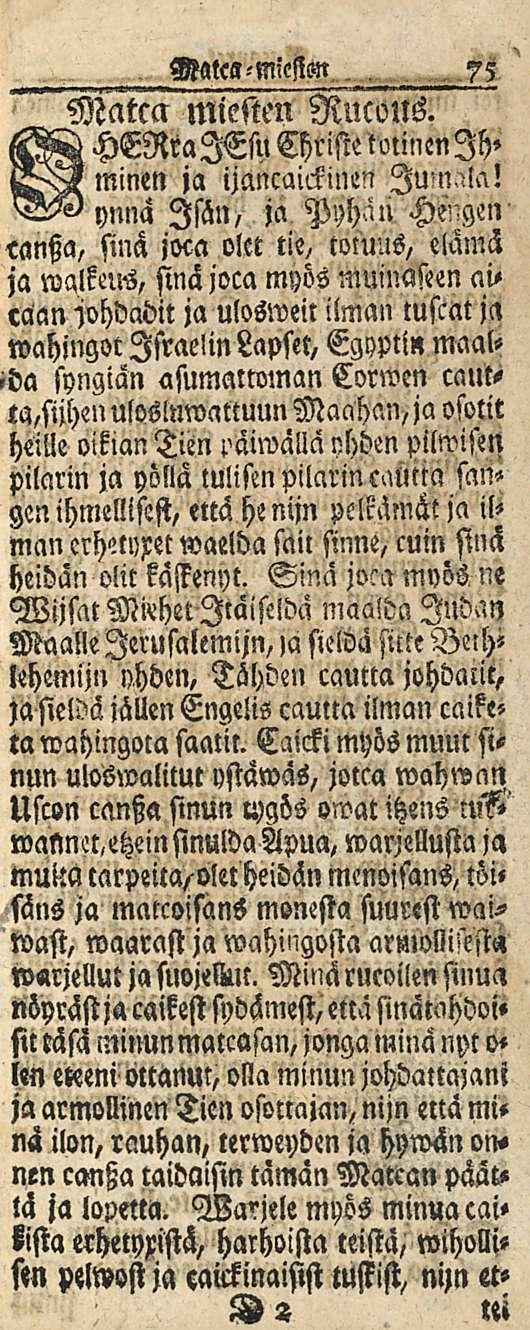 Matca-miesten 75
Matca miesten Rucous.
O HERra JEsu Christe totinen Ih-
minen ja ijancaickinen Jumala!
ynnä Isän, ja Pyhän Hengen
canßa, sinä joca olet tie, totuus, elämä
ja walkeus, sinä joca myös muinaseen ai-
caan johdadit ja ulosweit ilman tuscat ja
wahingot Israelin Lapset, Egyptin maal-
da syngiän asumattoman Corwen caut-
ta, sijhen ulosluwattuun Maahan, ja osotit
heille oikian Tien päiwällä yhden pilwisen
pilarin ja yöllä tulisen pilarin cautta san-
gen ihmellisest, että he nijn pelkämät ja il-
man erhetyxet waelda sait sinne, cuin sinä
heidän olit käskenyt. Sinä joca myös ne
Wijsat Miehet Itäiseldä maalda Judan
Maalle Jerusalemijn, ja sieldä sitte Beth-
lehemijn yhden, Tähden cautta johdatit,
ja sieldä jällen Engelis cautta ilman caike-
ta wahingota saatit. Caicki myös muut si-
nun uloswalitut ystäwäs, jotca wahwan
Uscon canßa sinun tygös owat itzens tur-
wannet, etzein sinulda Apua, warjellusta ja
muita tarpeita, olet heidän menoisans, töi-
säns ja matcoisans monesta suurest wai-
wast, waarast ja wahingosta armollisesta
warjellut ja suojellut. Minä rucoilen sinua
nöyräst ja caikest sydämest, että sinä tahdoi-
sit täsä minun matcasan, jonga minä nyt o-
len eteeni ottanut, olla minun johdattajani
ja armollinen Tien osottajan, nijn että mi-
nä ilon, rauhan, terweyden ja hywän on-
nen canßa taidaisin tämän Matcan päät-
tä ja lopetta. Warjele myös minua cai-
kista erhetyxistä, harhoista teistä, wiholli-
sen pelwost ja caickinaisist tuskist, nijn et-
D 2 tei